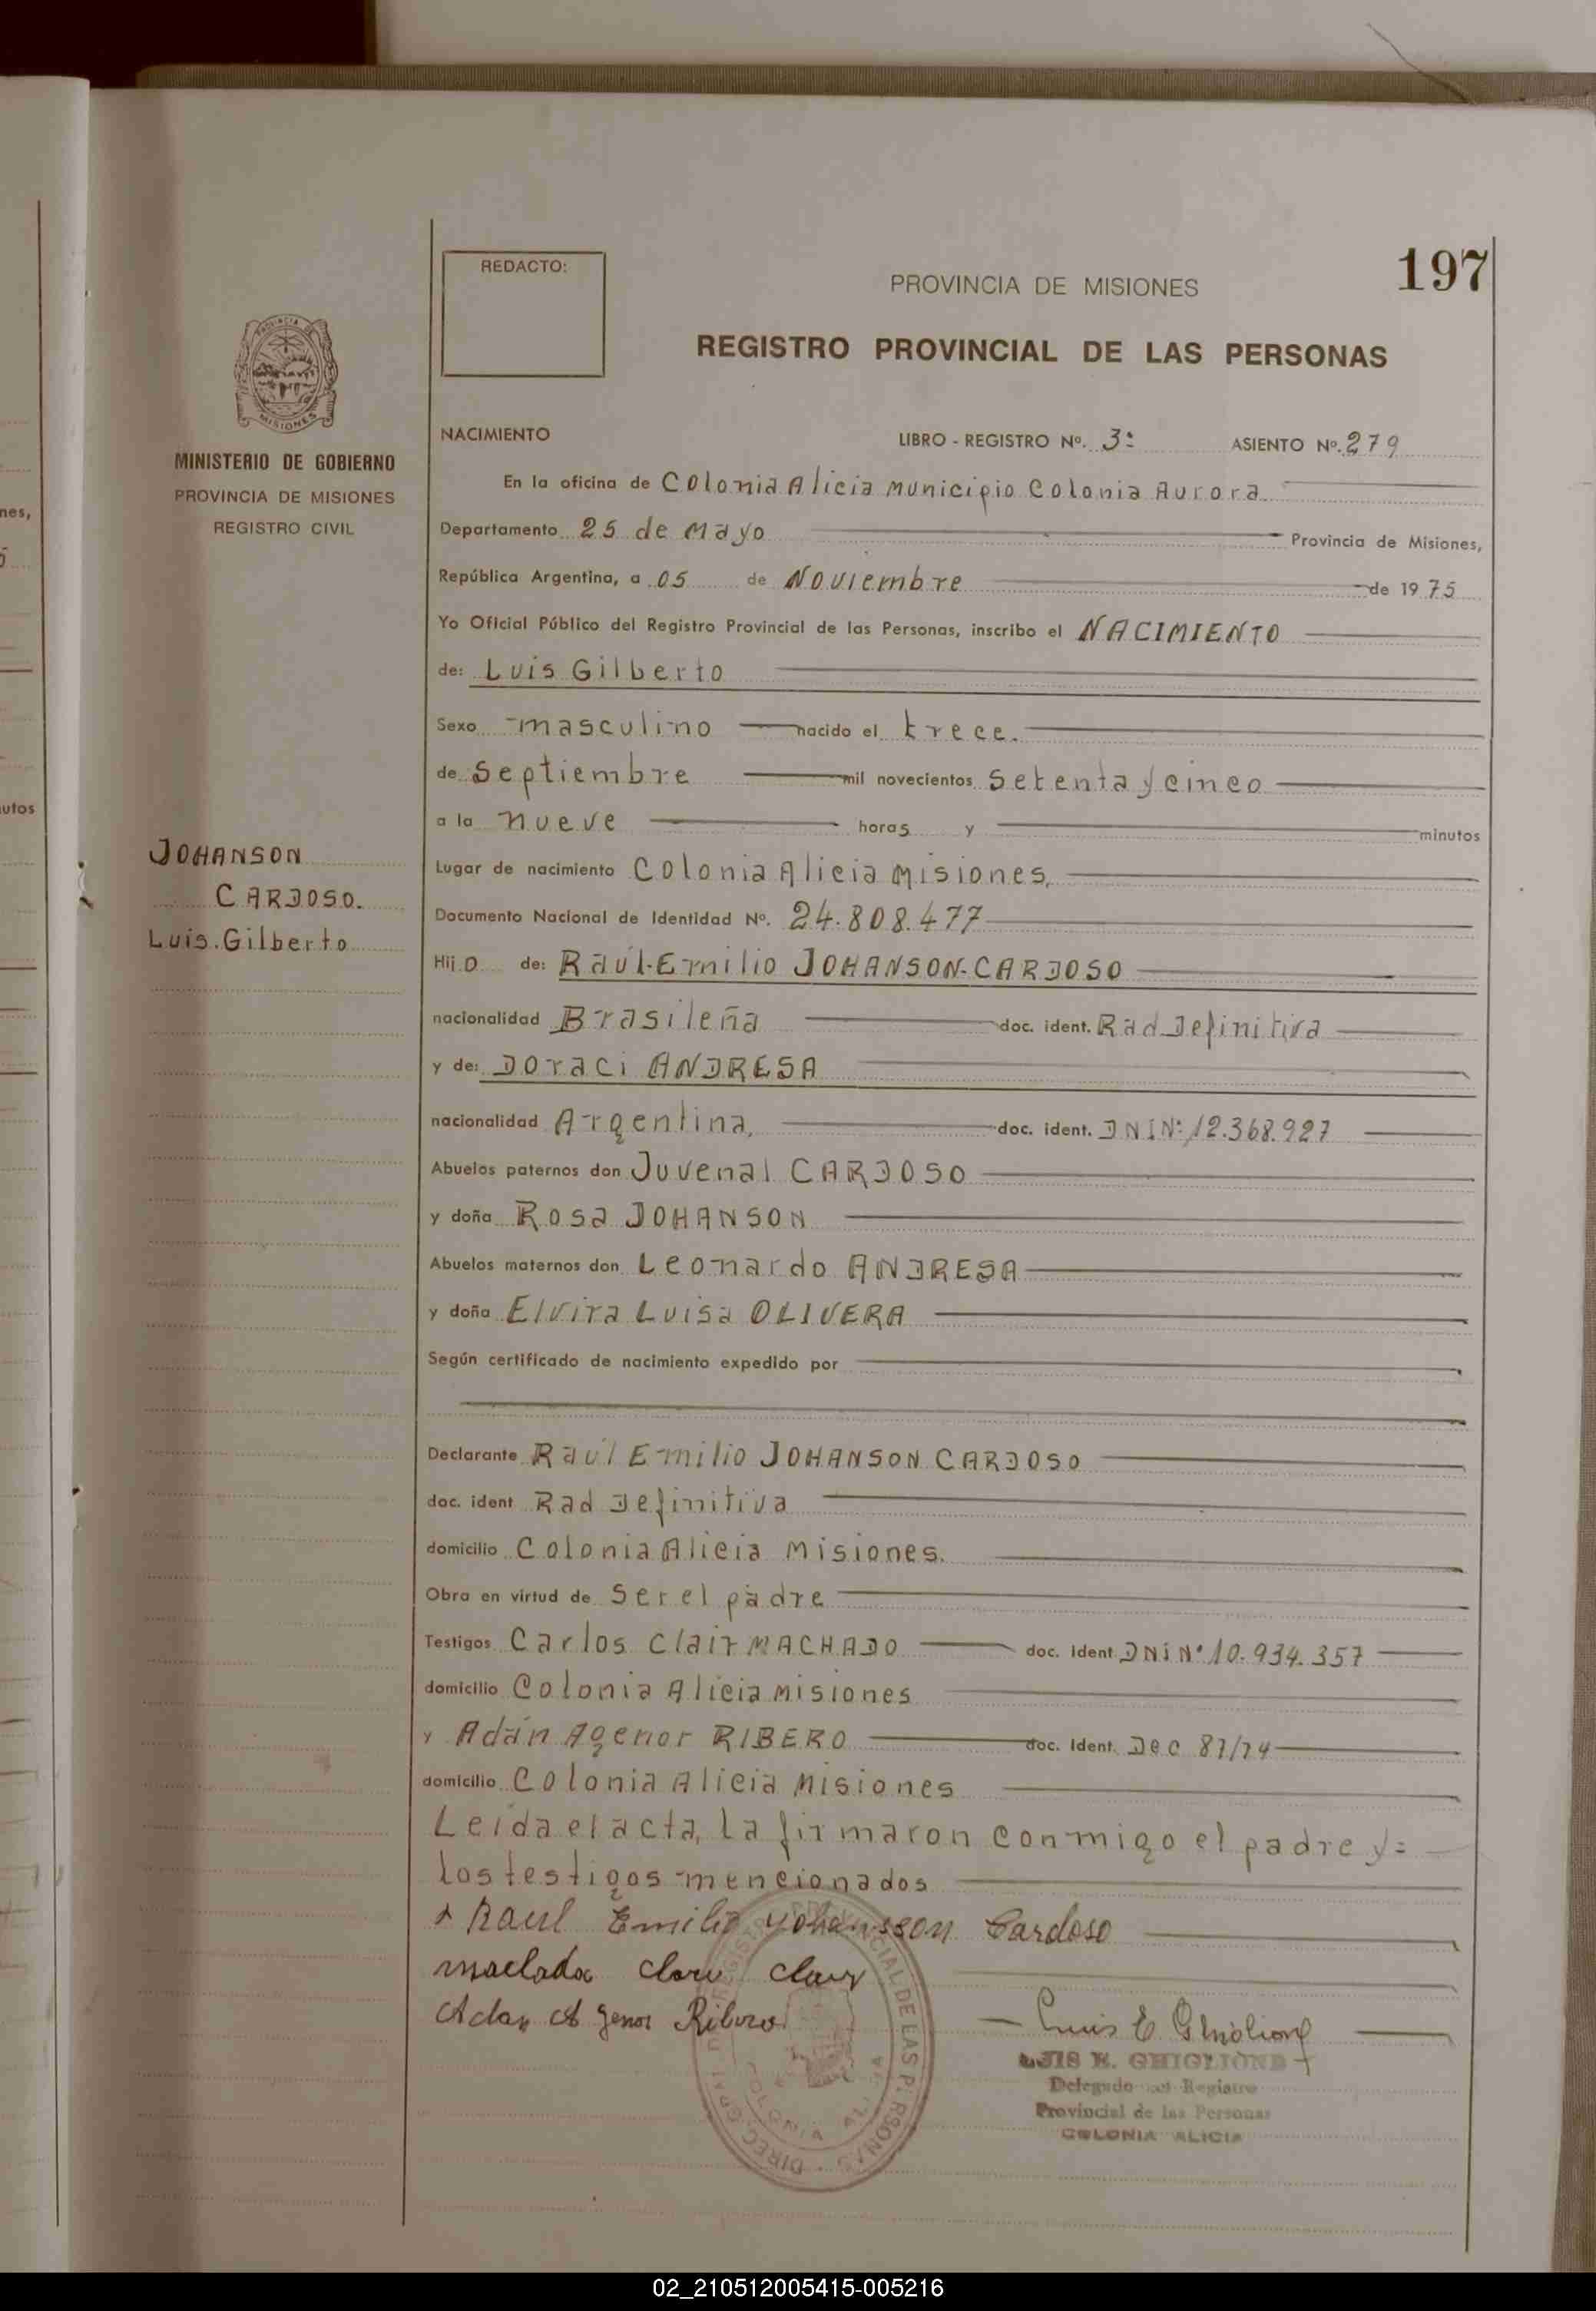 197
REDACTO:
PROVINCIA DE MISIONES
REGISTRO PROVINCIAL DE LAS PERSONAS
MISIONES
MINISTERIO DE GOBIERNO
PROVINCIA DE MISIONES
REGISTRO CIVIL
JOHANSON
CARDOSO.
Luis.Gilberto
NACIMIENTO LIBRO - REGISTRO Nº. 3º ASIENTO Nº. 279
En la oficina de Colonia Alicia Municipio Colonia Aurora
Departamento 25 de Mayo Provincia de Misiones,
República Argentina, a 05 de Noviembre de 1975
Yo Oficial Público del Registro Provincial de las Personas, inscribo el NACIMIENTO
de: Luis Gilberto
Sexo masculino nacido el trece.
de Septiembre mil novecientos setenta y cinco
a la nueve horas y minutos
Lugar de nacimiento Colonia Alicia Misiones,
Documento Nacional de Identidad Nº. 24.808.477
Hijo de: Raúl-Emilio JOHANSON-CARDOSO
nacionalidad Brasileña doc. ident. Rad Definitiva
y de: Doraci ANDRESA
nacionalidad Argentina, doc. ident. DNINº 12.368.927
Abuelos paternos don Juvenal CARDOSO
y doña Rosa JOHANSON
Abuelos maternos don Leonardo ANDRESA
y doña Elvira Luisa OLIVERA
Según certificado de nacimiento expedido por
Declarante Raúl Emilio JOHANSON CARDOSO
doc. ident Rad Definitiva
domicilio Colonia Alicia Misiones.
Obra en virtud de Ser el padre
Testigos Carlos Clair MACHADO doc. Ident DNI Nº 10.934.357
domicilio Colonia Alicia Misiones
y Adán Agenor RIBERO doc. Ident. DEC 87/74
domicilio Colonia Alicia Misiones
Leída el acta, la firmaron conmigo el padre y=
los testigos mencionados
Raul Emilio Yohansson Cardoso
Adan Agenor Ribero
Luis E. Ghiglione
LUIS E. GHIGLIONE
Delegado del Registro
Provincial de las Personas
COLONIA ALICIA
02_210512005415-005216